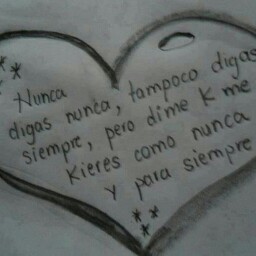 Nunca
digas nunca, tampoco digas
siempre, pero dime K me
Kieres como nunca
y para siempre